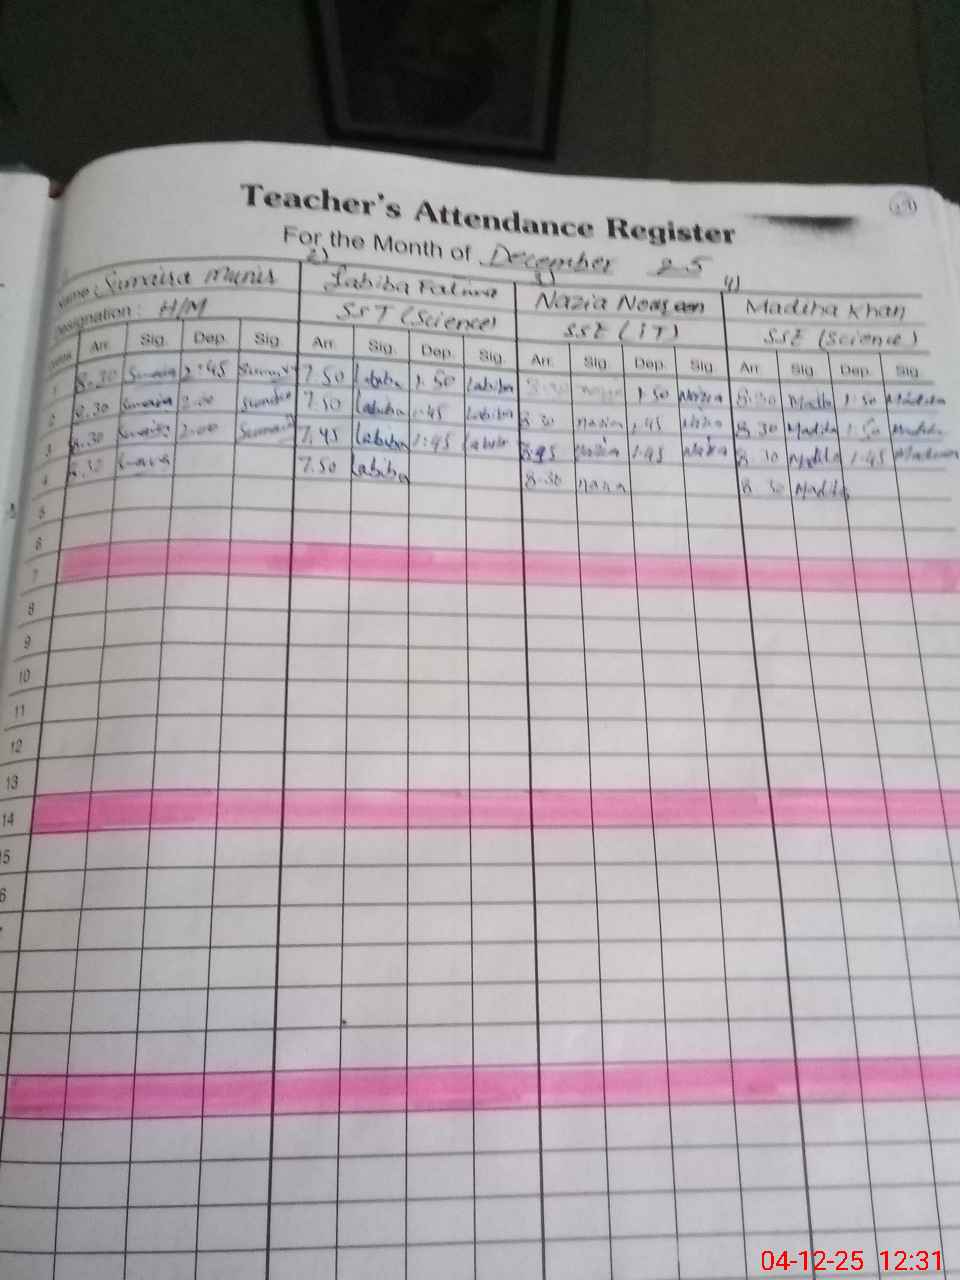 Teacher's Attendance Register
For the Month of December 25
2) 3) 4)
Name: Sumaira Munir Labiba Fatima Nazia Noreen Madiha Khan
Designation: H/M SST (Science) SSE (IT) SSE (Science)
Arr. Sig. Dep. Sig. Arr. Sig. Dep. Sig. Arr. Sig. Dep. Sig. Arr. Sig. Dep. Sig.
1 8.30 2:45 7.50 Labiba 1.50 Labiba 1.50 Nazia 8:30 Madiha 1:50 Madiha
2 8.30 2:00 7.50 Labiba 1:45 Labiba 8.30 Nazia 1.45 Nazia 8.30 Madiha 1:50 Madiha
3 8.30 2:00 7.45 Labiba 1:45 Labiba Nazia 1:45 Nazia 8.30 Madiha 1:45 Madiha
4 8.30 7.50 Labiba 8.30 Nazia 8.30 Madiha
5
6
7
8
9
10
11
12
13
14
15
6
04-12-25 12:31